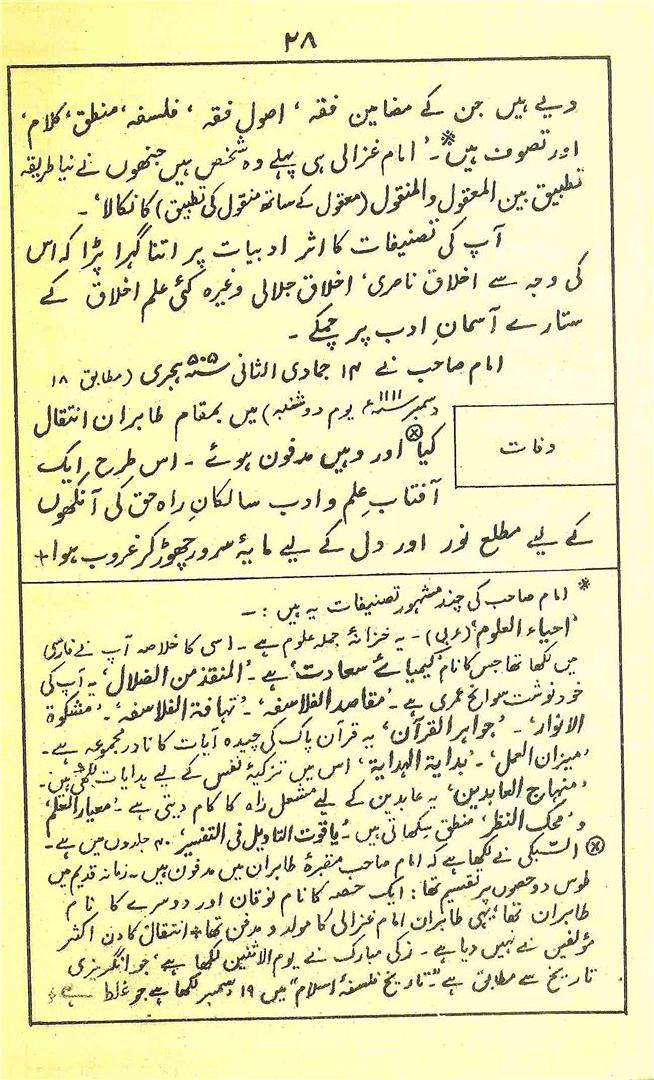 ۲۸
دیے ہیں جن کے مضامین فقہ ' اصولِ فقہ ' فلسفہ ' منطق ' کلام '
اور تصوف ہیں※ ۔ ' امام غزالی ہی پہلے وہ شخص ہیں جنھوں نے نیا طریقہ
تطبیق بین المعقول والمنقول (معقول کے ساتھ منقول کی تطبیق) کا نکالا' ۔
آپ کی تصنیفات کا اثر ادبیات پر اتنا گہرا پڑا کہ اس
کی وجہ سے اخلاق ناصری ' اخلاق جلالی وغیرہ کئی علم اخلاق کے
ستارے آسمانِ ادب پر چمکے ۔
امام صاحب نے ۱۴ جمادی الثانی ۵۰۵ہجری (مطابق ۱۸
دسمبر ۱۱۱۱ء یوم دوشنبہ) میں بمقام طابران انتقال
وفات
کیا⊗ اور وہیں مدفون ہوئے ۔ اس طرح ایک
آفتابِ علم و ادب سالکانِ راہ حق کی آنکھوں
کے لیے مطلع نور اور دل کے لیے مایۂ سرور چھوڑ کر غروب ہوا+
※ امام صاحب کی چند مشہور تصنیفات یہ ہیں :۔
'احیاء العلوم' (عربی) ۔ یہ خزانۂ جملہ علوم ہے ۔ اسی کا خلاصہ آپ نے فارسی
میں لکھا تھا جس کا نام 'کیمیائے سعادت' ہے ۔ 'المنقذ من الضلال' ۔ یہ آپ کی
خود نوشت سوانح عمری ہے ۔ 'مقاصد الفلاسفہ' ۔ 'تہافۃ الفلاسفہ' ۔ 'مشکوۃ
الانوار' ۔ 'جواہر القرآن' یہ قرآن پاک کی چیدہ آیات کا نادر مجموعہ ہے ۔
'میزان العمل' ۔ 'بدایۃ الہدایۃ' اس میں تزکیۂ نفس کے لیے ہدایات لکھی ہیں ۔
'منہاج العابدین' یہ عابدین کے لیے مشعل راہ کا کام دیتی ہے ۔ 'معیار العلم'
و 'محک النظر' منطق سکھاتی ہیں ۔ 'یاقوت التاویل فی التفسیر' ۴۰ جلدوں میں ہے ۔
⊗ السّبکی نے لکھا ہے کہ امام صاحب مقبرۂ طابران میں مدفون ہیں ۔ زمانہ قدیم میں
طوس دو حصوں پر تقسیم تھا : ایک حصہ کا نام نوقان اور دوسرے کا نام
طابران تھا ؛ یہی طابران امام غزالی کا مولد و مدفن تھا+ انتقال کا دن اکثر
مؤلفین نے نہیں دیا ہے ۔ زکی مبارک نے یوم الاثنین لکھا ہے ' جو انگریزی
تاریخ سے مطابق ہے ۔ "تاریخ فلسفۂ اسلام" میں ۱۹ دسمبر لکھا ہے جو غلط ہے+